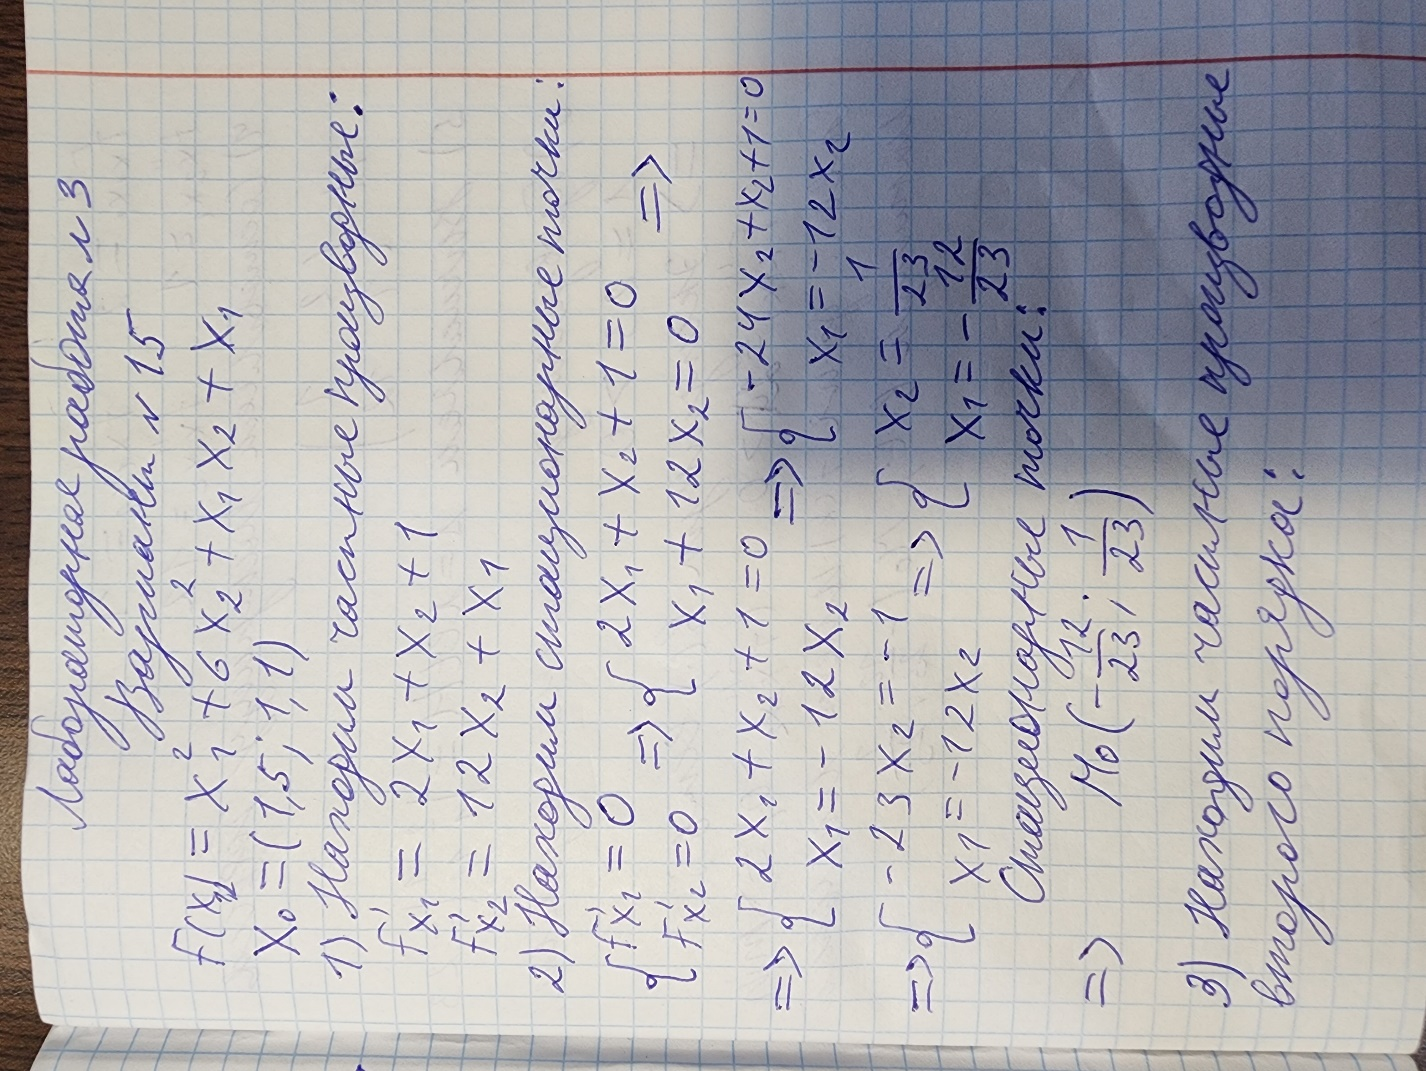 Лабораторная работа № 3
Вариант № 15
F(x) = x₁² + 6x₂² + x₁x₂ + x₁
X₀ = (1,5; 1,1)
1) Находим частные производные:
F'x₁ = 2x₁ + x₂ + 1
F'x₂ = 12x₂ + x₁
2) Находим стационарные точки:
{ F'x₁ = 0 => { 2x₁ + x₂ + 1 = 0 =>
{ F'x₂ = 0 { x₁ + 12x₂ = 0
=> { 2x₁ + x₂ + 1 = 0 => { -24x₂ + x₂ + 1 = 0
{ x₁ = -12x₂ { x₁ = -12x₂
=> { -23x₂ = -1 => { x₂ = 1/23
{ x₁ = -12x₂ { x₁ = -12/23
Стационарные точки:
=> M₀ (-12/23; 1/23)
3) Находим частные производные
второго порядка: